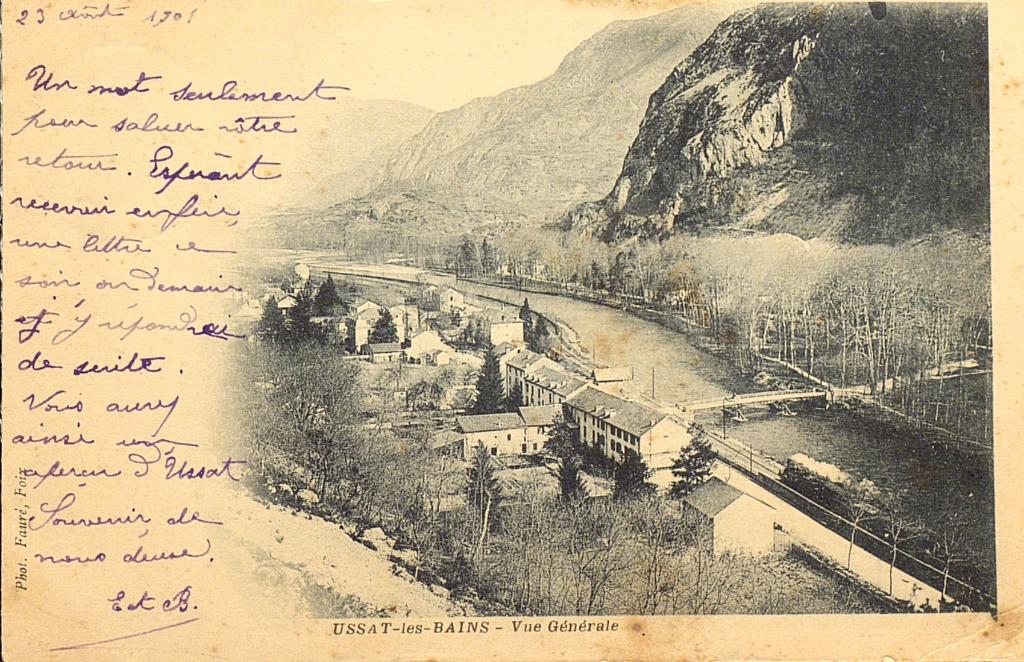 23 Août 1901
Un mot seulement
pour saluer vôtre
retour. Espérant
recevoir enfin,
une lettre ce
soir ou demain
et j'y répondrai
de suite.
Vous aurez
ainsi un
aperçu d'Ussat
Souvenir de
nous deux.
E et B.
Phot. Fauré, Foix
USSAT-les-BAINS - Vue Générale